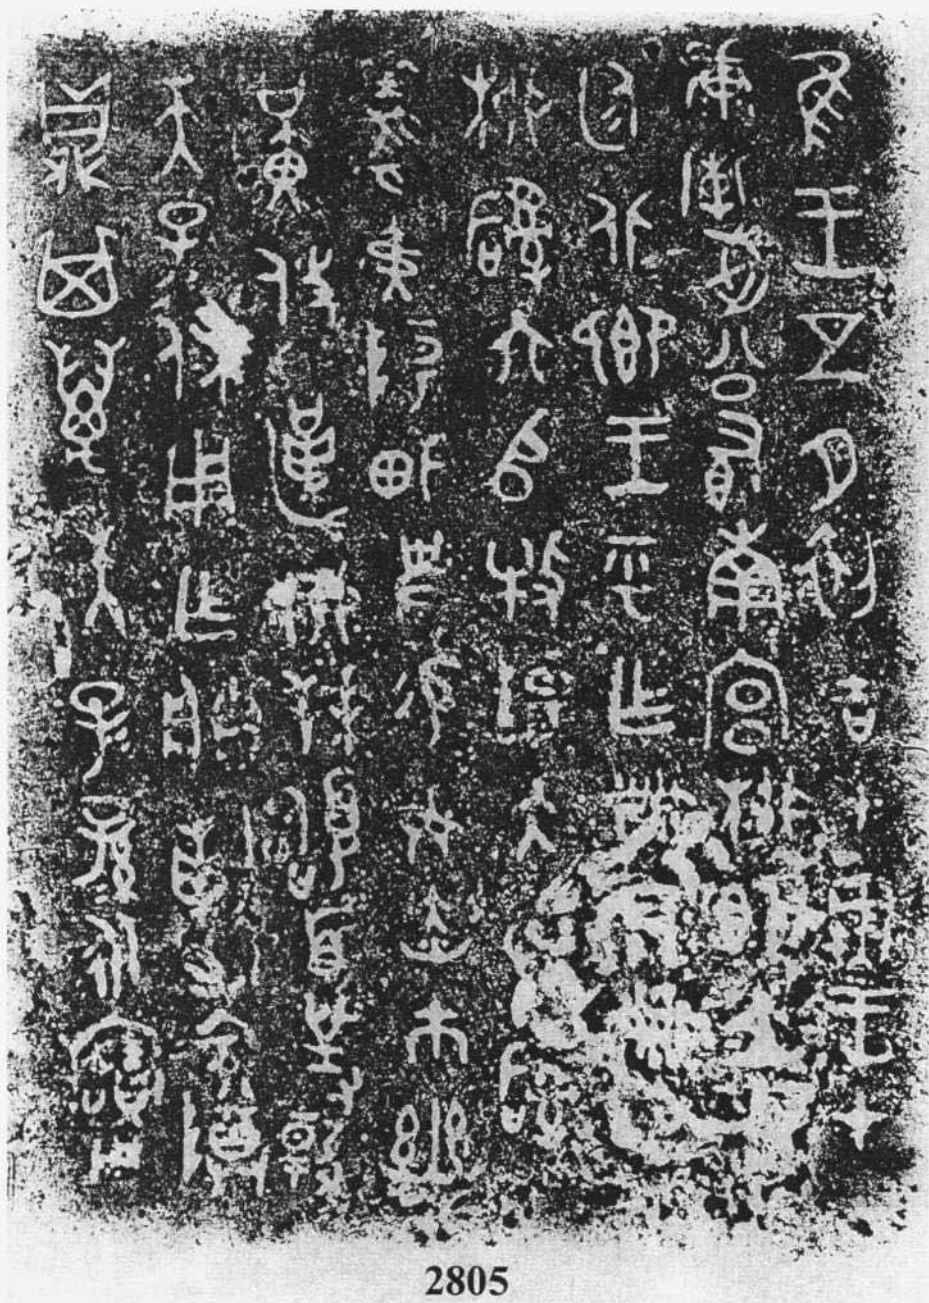 隹王五月初吉甲寅王才
康廟武公有南宮柳即立中
廷北鄉王乎乍冊尹冊令
柳𤔲六𠂤牧陽大𤔲
羲夷陽佃史易女赤巿幽
黃攸勒柳拜𩒨首對揚
天子休用乍朕剌考尊
鼎其萬年子子孫孫永寶用
2805